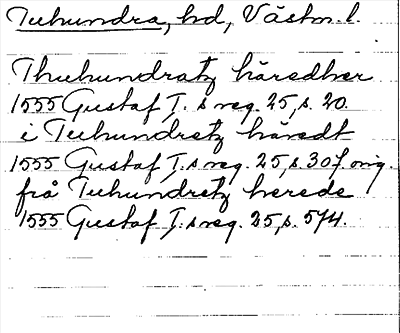 Tuhundra, hd, Västm. l.
Thuhundratz häredher
1555 Gustaf I. s reg. 25, s. 20.
i Tuhundretz häredt
1555 Gustaf I. s reg. 25, s. 307. orig.
frå Tuhundretz herede
1555 Gustaf I. s reg. 25, s. 574.